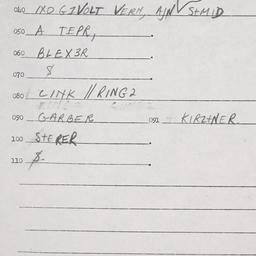 040 IXO GIVOLT VERN, AJN √ S+MID
050 A TEPR,
060 BLEX3R
070 $
080 LINK // RING2
090 GARBER 091 KIRZTNER
100 STERER
110 $.